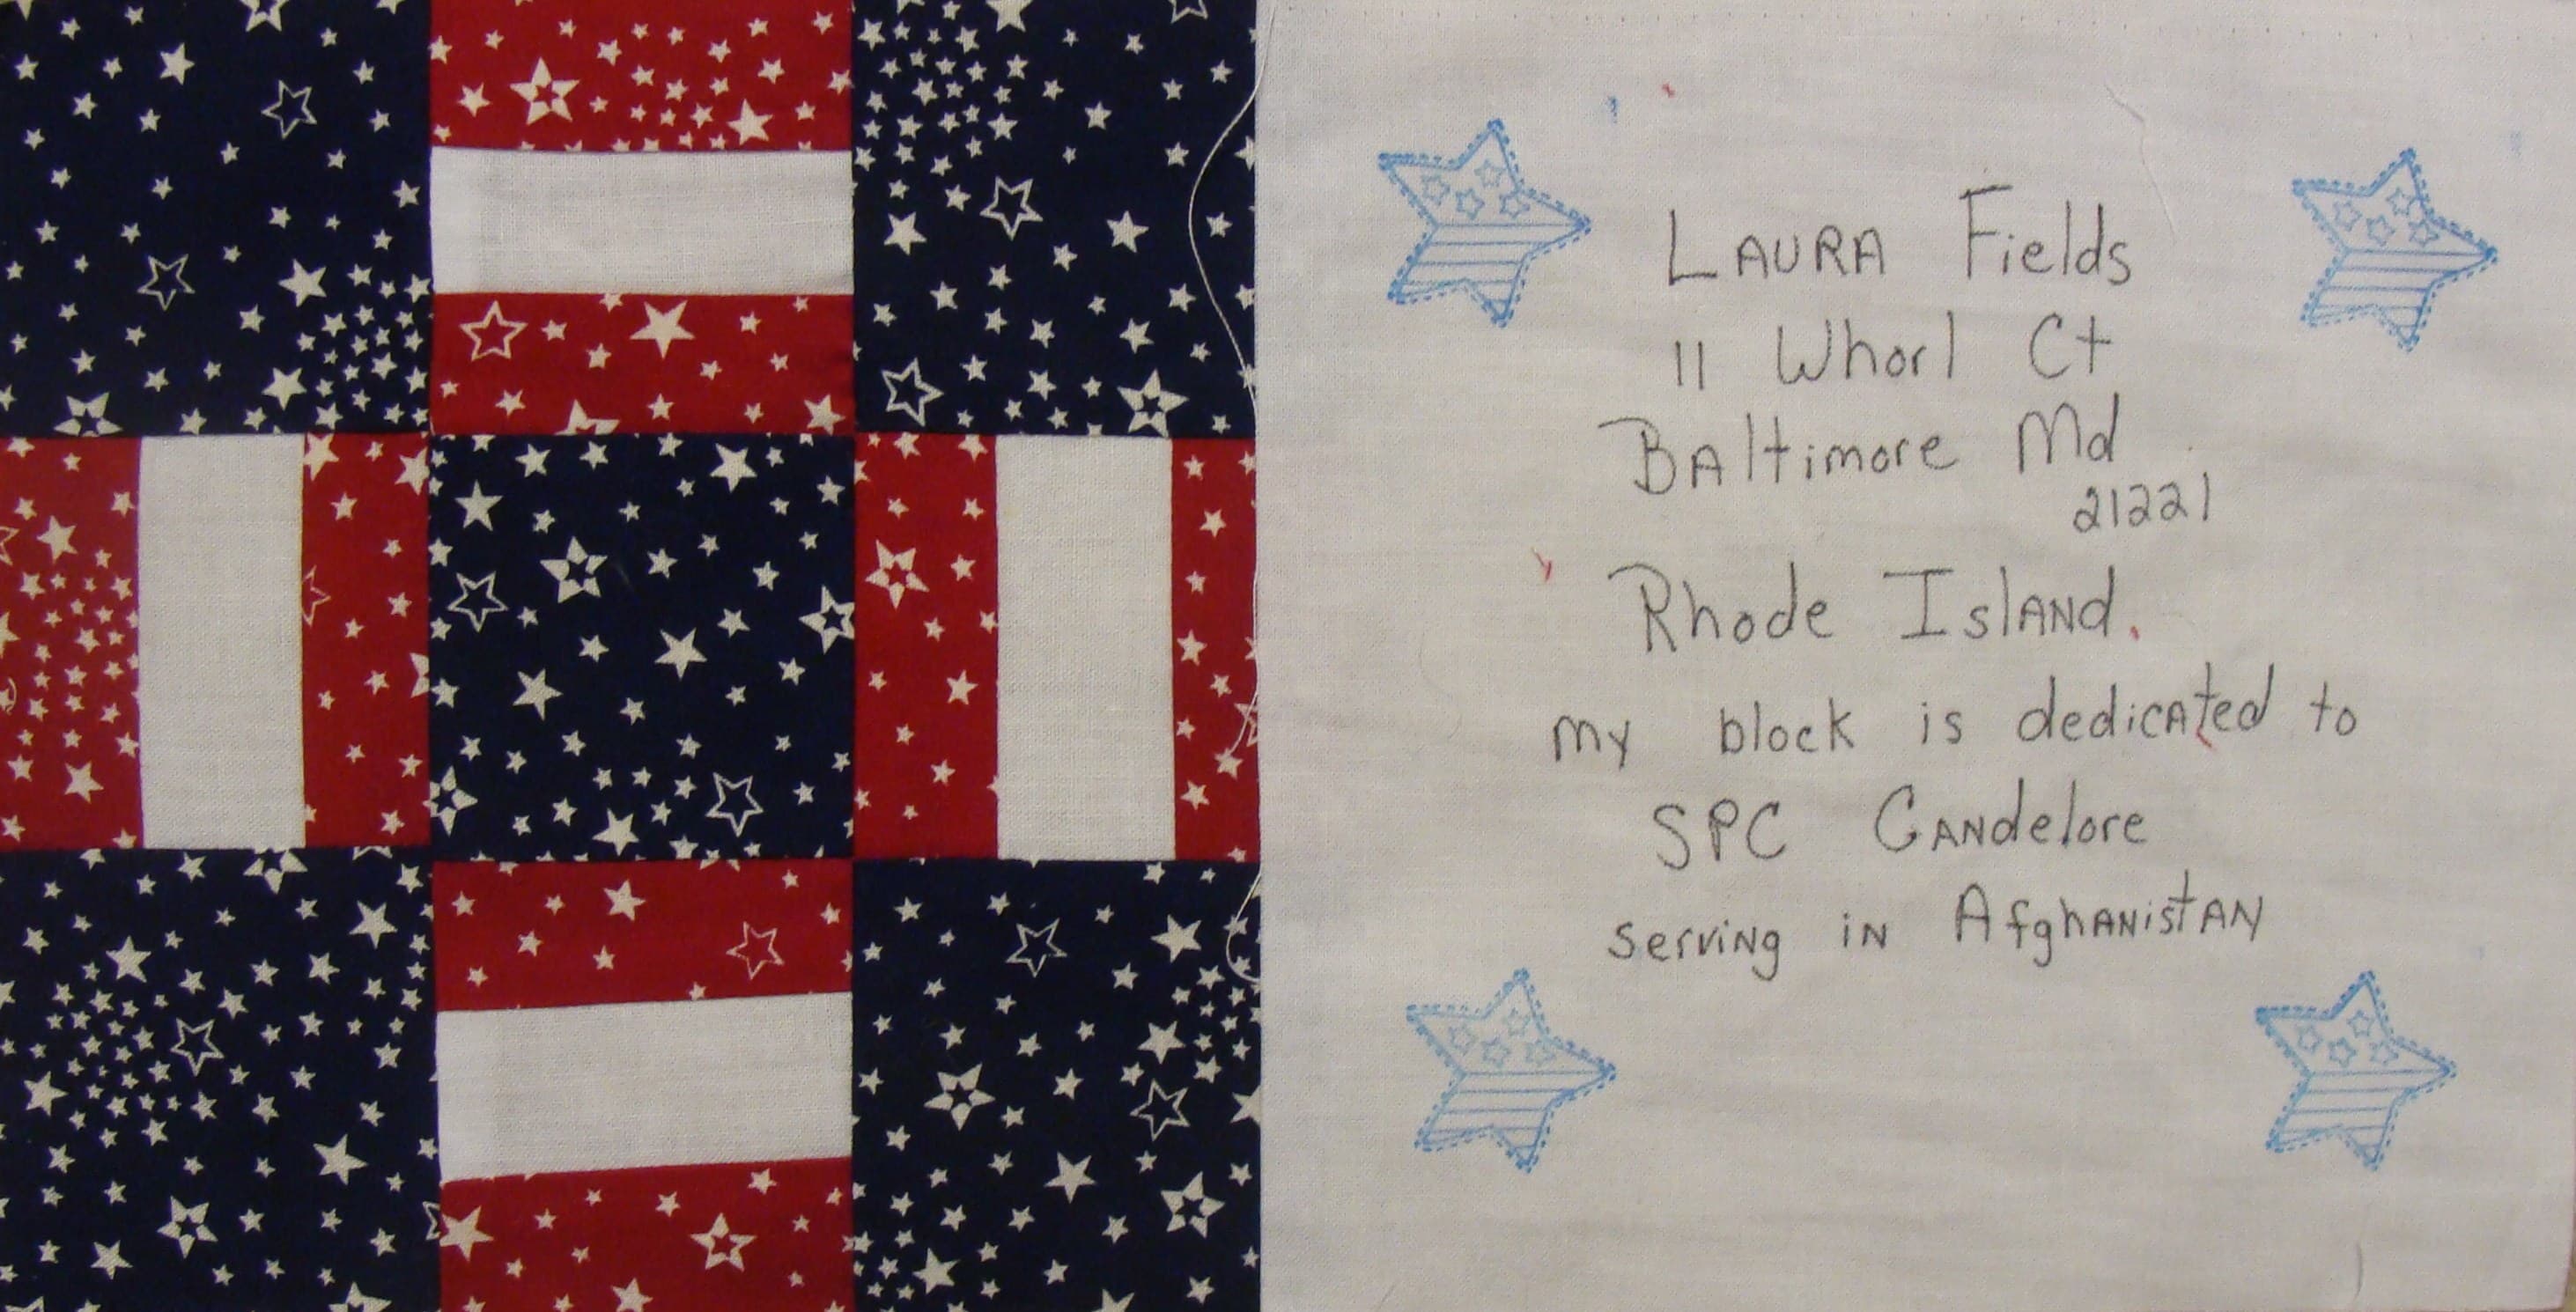 LAURA Fields
11 Whorl Ct
BAltimore Md
21221
Rhode IslAND.
my block is dedicAted to
SPC CANdelore
serviNg iN AfghANistAN